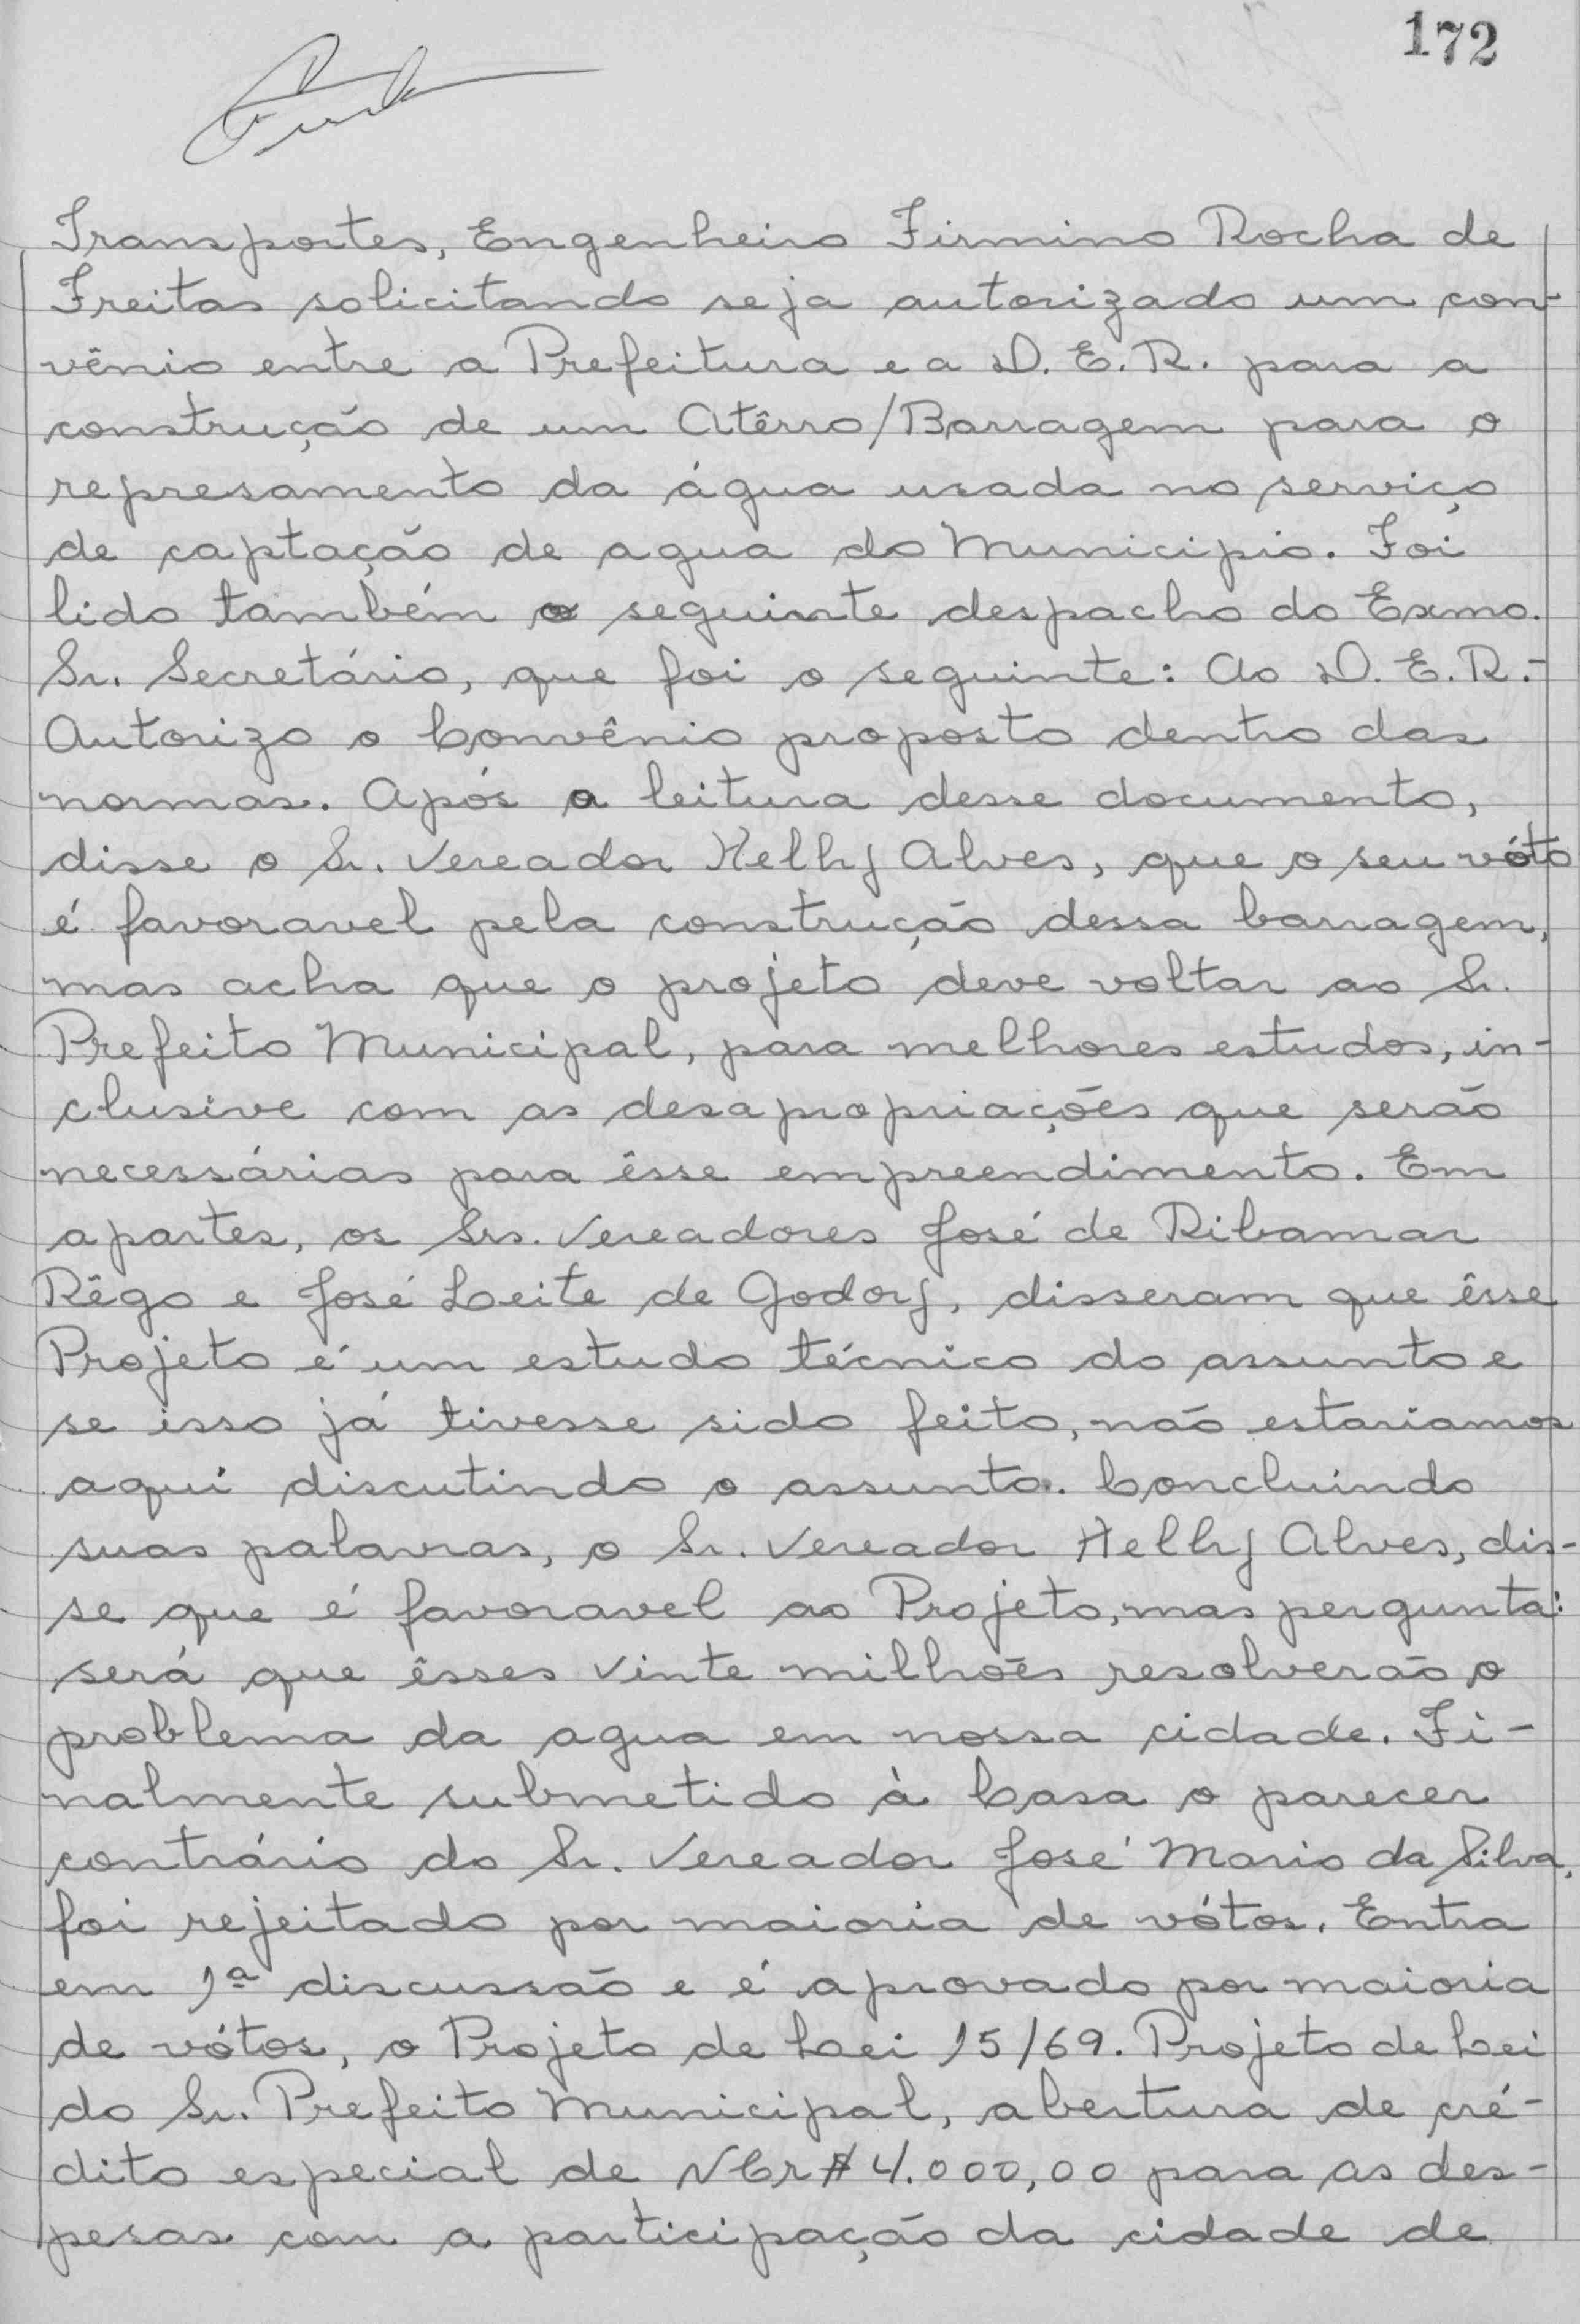 172
Transportes, Engenheiro Firmino Rocha de
Freitas solicitando seja autorizado um con-
vênio entre a Prefeitura e a D. E. R. para a
construção de um Atêrro/Barragem para o
represamento da água usada no serviço
de captação de agua do Municipio. Foi
lido também o seguinte despacho do Exmo.
Sr. Secretário, que foi o seguinte: Ao D. E. R.-
Autorizo o Convênio proposto dentro das
normas. Após a leitura desse documento,
disse o Sr. Vereador Helhy Alves, que o seu vóto
é favoravel pela construção dessa barragem,
mas acha que o projeto deve voltar ao Sr.
Prefeito Municipal, para melhores estudos, in-
clusive com as desapropriações que serão
necessárias para êsse empreendimento. Em
apartes, os Srs. Vereadores José de Ribamar
Rêgo e José Leite de Godoy, disseram que êsse
Projeto é um estudo técnico do assunto e
se isso já tivesse sido feito, não estariamos
aqui discutindo o assunto. Concluindo
suas palavras, o Sr. Vereador Helhy Alves, dis-
se que é favoravel ao Projeto, mas pergunta:
será que êsses vinte milhões resolverão o
problema da agua em nossa cidade. Fi-
nalmente submetido à Casa o parecer
contrário do Sr. Vereador José Mario da Silva,
foi rejeitado por maioria de vótos. Entra
em 1ª discussão e é aprovado por maioria
de vótos, o Projeto de Lei 15/69. Projeto de Lei
do Sr. Prefeito Municipal, abertura de cré-
dito especial de NCr$ 4.000,00 para as des-
pesas com a participação da cidade de